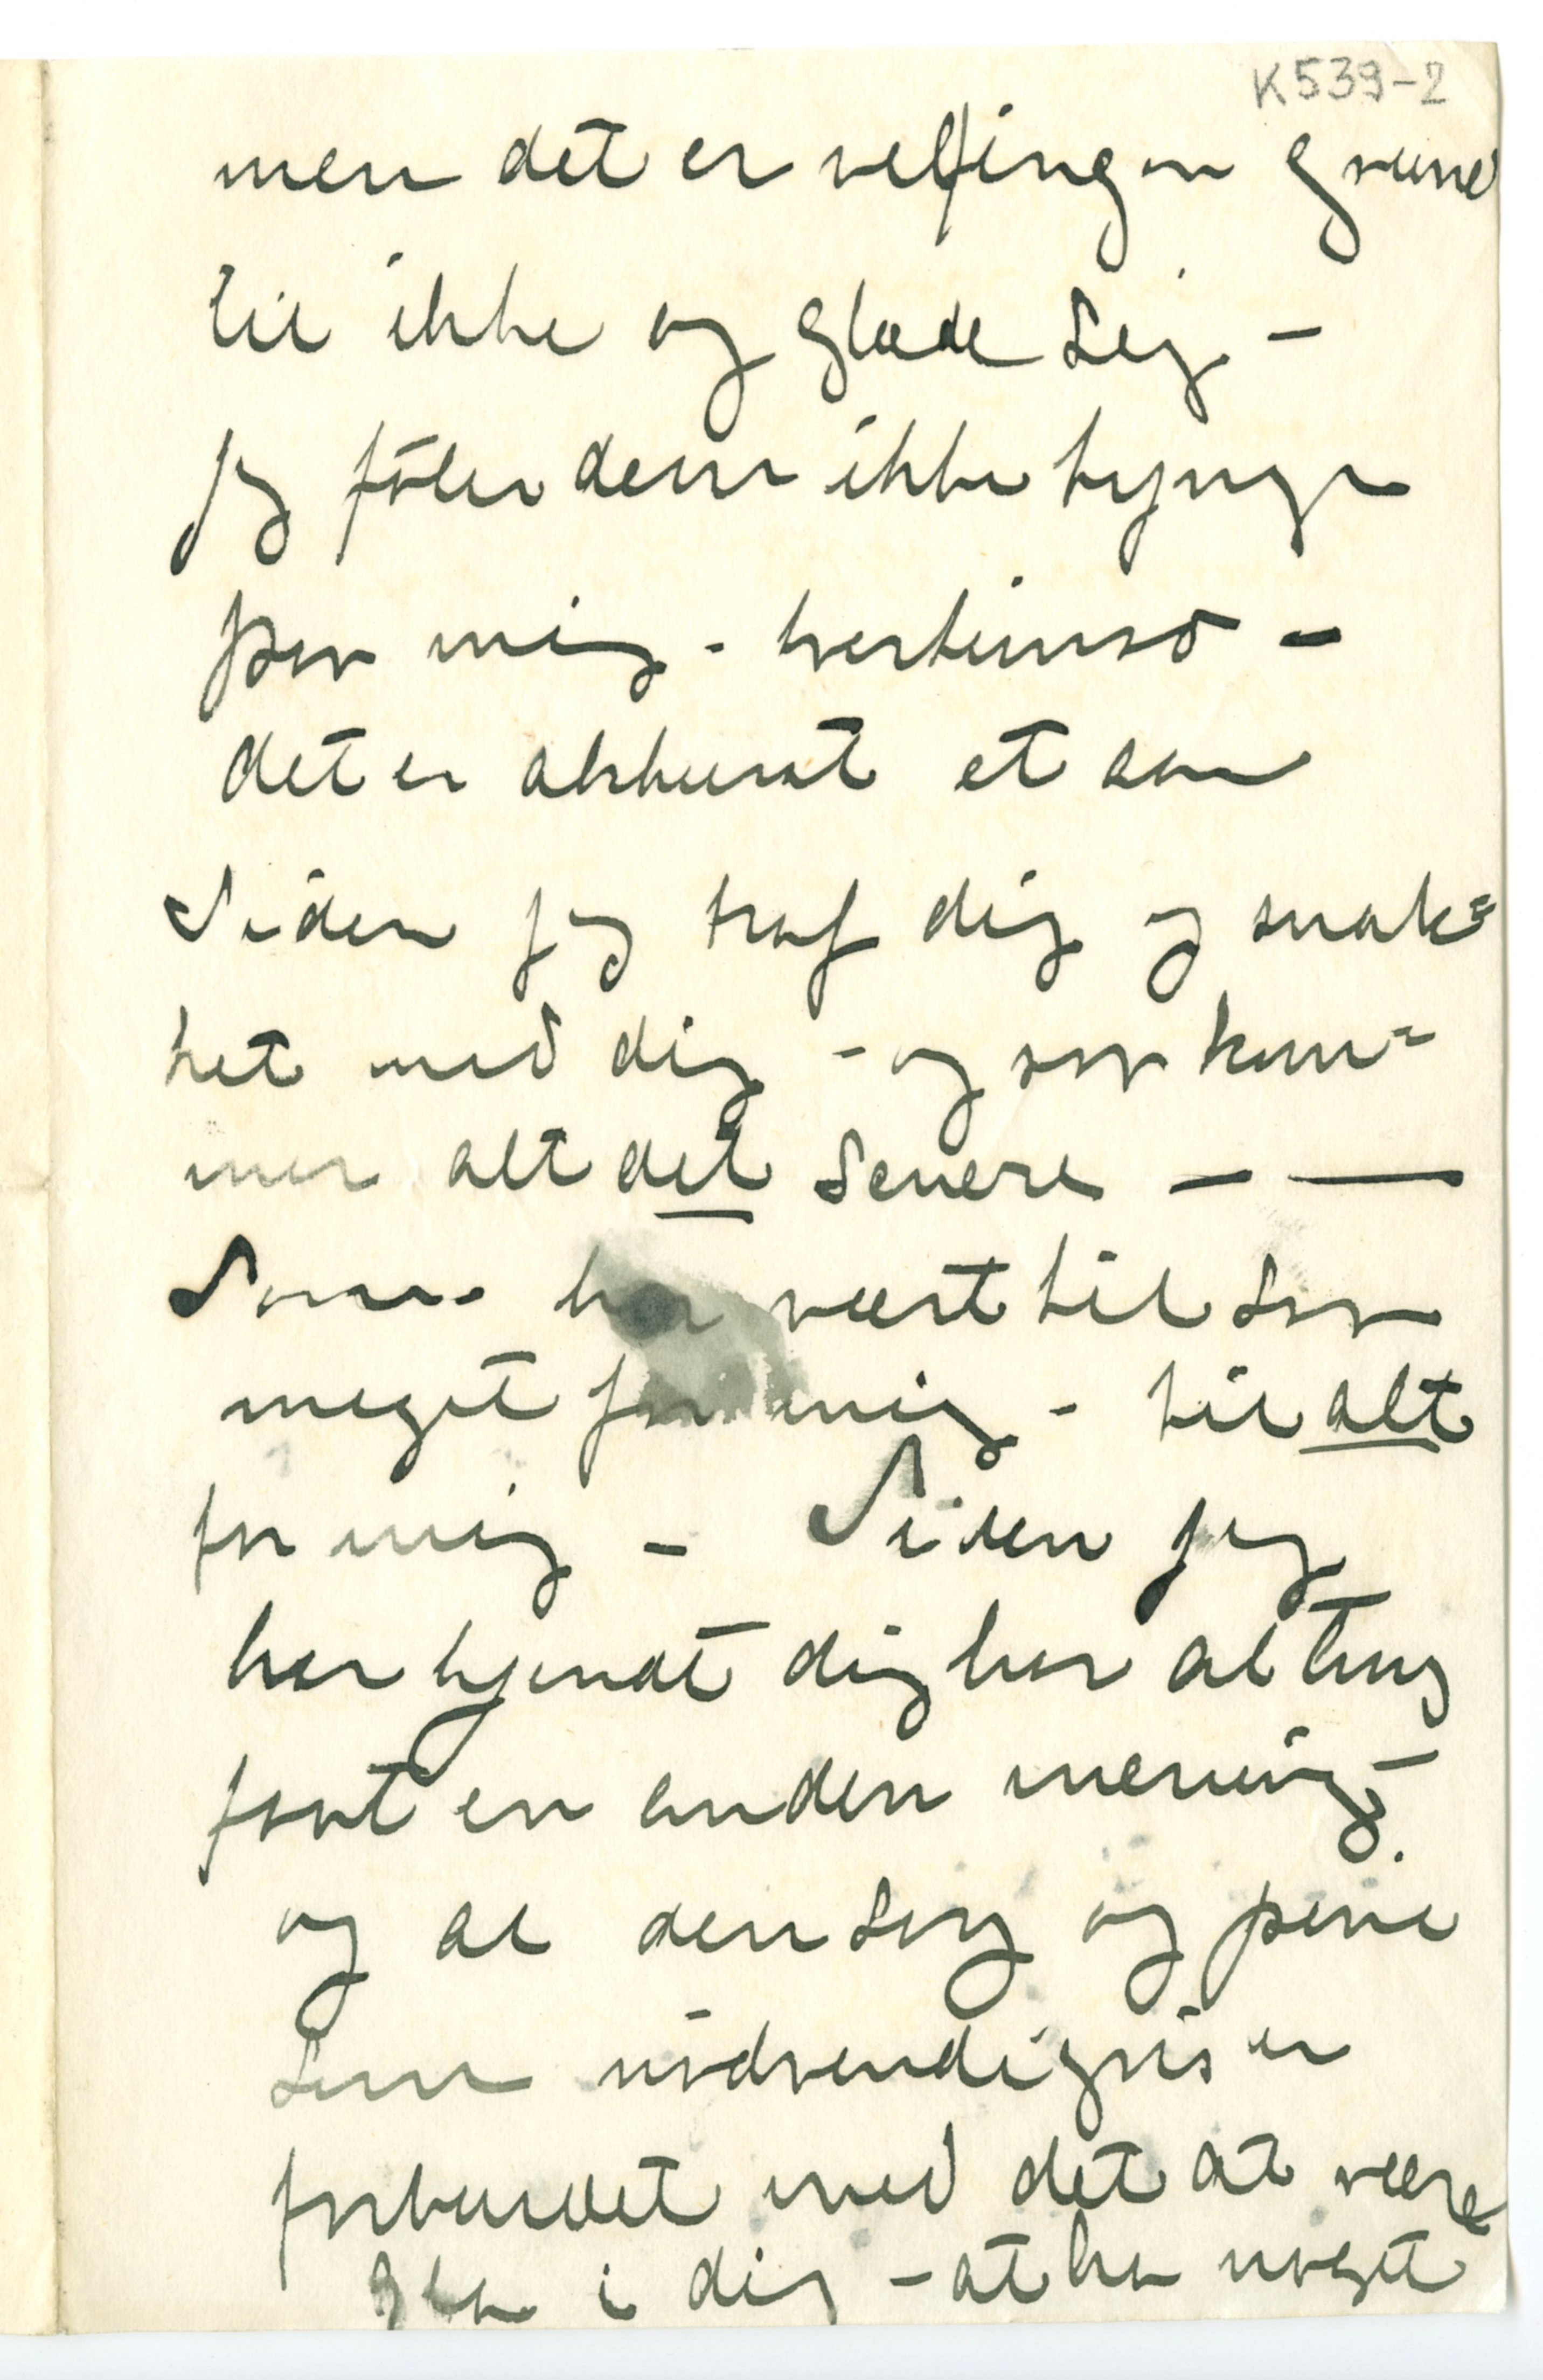 K539-2
men det er vel ingen grund
til ikke og glæde sig –
Jeg føler dem ikke tynge
paa mig – tvertimod –
det er akkurat et aar
Siden jeg traf dig og snak=
ket med dig – og saa kom=
mer alt det Senere – —
Som har vært til saa
meget for mig – til alt
for mig – Siden jeg
har kjendt dig har alting
faat en anden mening –
og al den sorg og pine
som nødvendigvis er
forbundet med det at være
gla i dig – at ha noget